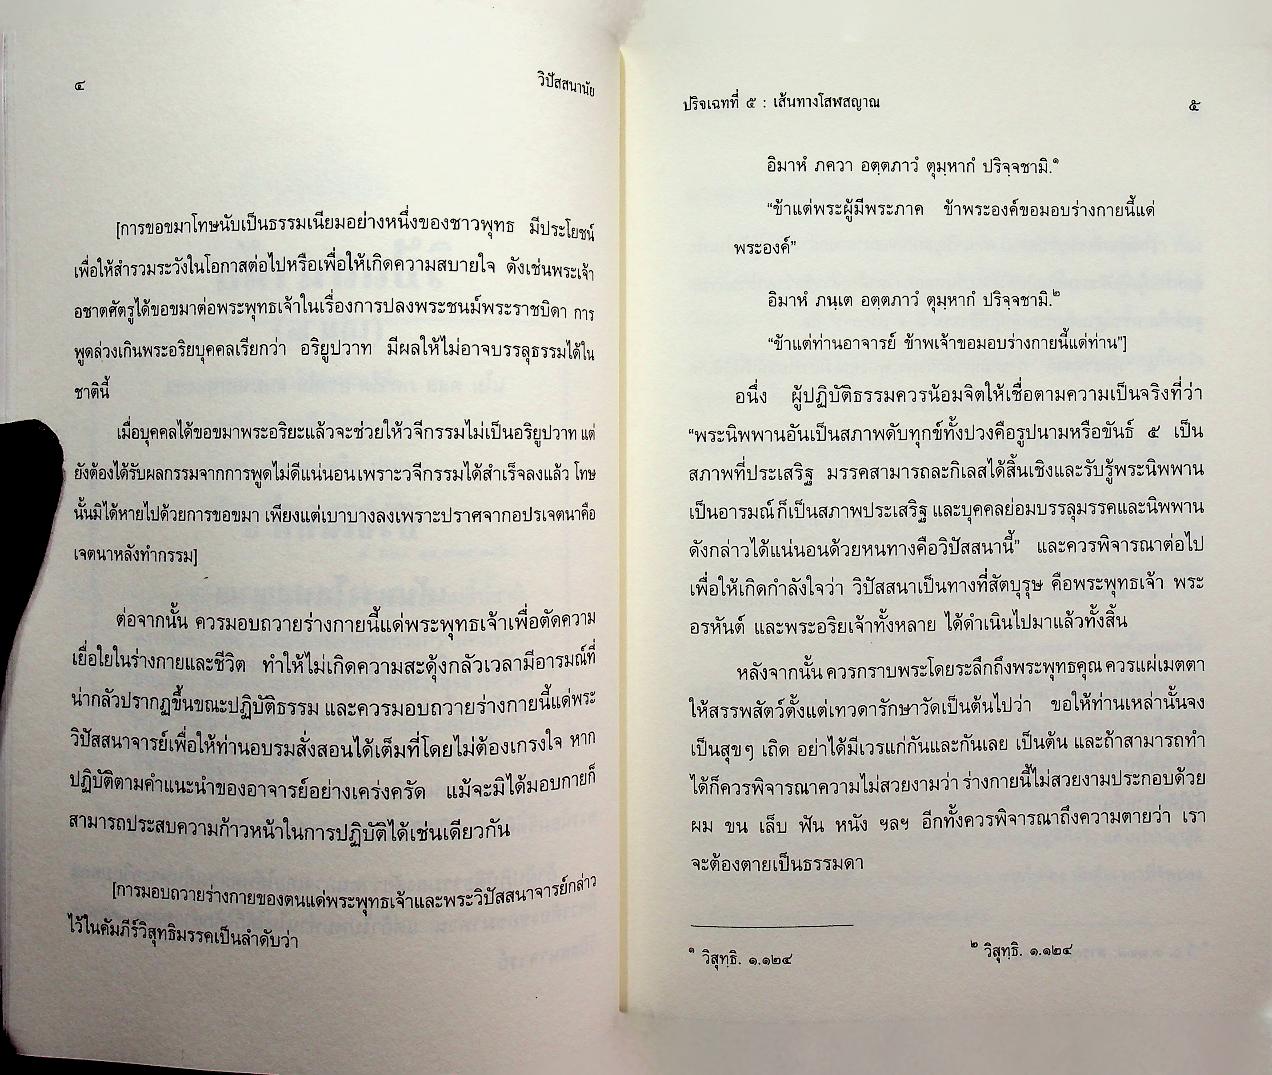 ๔
วิปัสสนานัย
[การขอขมาโทษนับเป็นธรรมเนียมอย่างหนึ่งของชาวพุทธ มีประโยชน์
เพื่อให้สำรวมระวังในโอกาสต่อไปหรือเพื่อให้เกิดความสบายใจ ดังเช่นพระเจ้า
อชาตศัตรูได้ขอขมาต่อพระพุทธเจ้าในเรื่องการปลงพระชนม์พระราชบิดา การ
พูดล่วงเกินพระอริยบุคคลเรียกว่า อริยูปวาท มีผลให้ไม่อาจบรรลุธรรมได้ใน
ชาตินี้
เมื่อบุคคลได้ขอขมาพระอริยะแล้วจะช่วยให้วจีกรรมไม่เป็นอริยูปวาท แต่
ยังต้องได้รับผลกรรมจากการพูดไม่ดีแน่นอน เพราะวจีกรรมได้สำเร็จลงแล้ว โทษ
นั้นมิได้หายไปด้วยการขอขมา เพียงแต่เบาบางลงเพราะปราศจากอปรเจตนาคือ
เจตนาหลังทำกรรม]
ต่อจากนั้น ควรมอบถวายร่างกายนี้แด่พระพุทธเจ้าเพื่อตัดความ
เยื่อใยในร่างกายและชีวิต ทำให้ไม่เกิดความสะดุ้งกลัวเวลามีอารมณ์ที่
น่ากลัวปรากฏขึ้นขณะปฏิบัติธรรม และควรมอบถวายร่างกายนี้แด่พระ
วิปัสสนาจารย์เพื่อให้ท่านอบรมสั่งสอนได้เต็มที่โดยไม่ต้องเกรงใจ หาก
ปฏิบัติตามคำแนะนำของอาจารย์อย่างเคร่งครัด แม้จะมิได้มอบกายก็
สามารถประสบความก้าวหน้าในการปฏิบัติได้เช่นเดียวกัน
[การมอบถวายร่างกายของตนแด่พระพุทธเจ้าและพระวิปัสสนาจารย์กล่าว
ไว้ในคัมภีร์วิสุทธิมรรคเป็นลำดับว่า
ปริจเฉทที่ ๕ : เส้นทางโสฬสญาณ
๕
อิมาหํ ภควา อตฺตภาวํ ตุมฺหากํ ปริจฺจชามิ.๑
“ข้าแต่พระผู้มีพระภาค ข้าพระองค์ขอมอบร่างกายนี้แด่
พระองค์”
อิมาหํ ภนฺเต อตฺตภาวํ ตุมฺหากํ ปริจฺจชามิ.๒
“ข้าแต่ท่านอาจารย์ ข้าพเจ้าขอมอบร่างกายนี้แด่ท่าน”]
อนึ่ง ผู้ปฏิบัติธรรมควรน้อมจิตให้เชื่อตามความเป็นจริงที่ว่า
“พระนิพพานอันเป็นสภาพดับทุกข์ทั้งปวงคือรูปนามหรือขันธ์ ๕ เป็น
สภาพที่ประเสริฐ มรรคสามารถละกิเลสได้สิ้นเชิงและรับรู้พระนิพพาน
เป็นอารมณ์ ก็เป็นสภาพประเสริฐ และบุคคลย่อมบรรลุมรรคและนิพพาน
ดังกล่าวได้แน่นอนด้วยหนทางคือวิปัสสนานี้” และควรพิจารณาต่อไป
เพื่อให้เกิดกำลังใจว่า วิปัสสนาเป็นทางที่สัตบุรุษ คือพระพุทธเจ้า พระ
อรหันต์ และพระอริยเจ้าทั้งหลาย ได้ดำเนินไปมาแล้วทั้งสิ้น
หลังจากนั้น ควรกราบพระโดยระลึกถึงพระพุทธคุณ ควรแผ่เมตตา
ให้สรรพสัตว์ตั้งแต่เทวดารักษาวัดเป็นต้นไปว่า ขอให้ท่านเหล่านั้นจง
เป็นสุขๆ เถิด อย่าได้มีเวรแก่กันและกันเลย เป็นต้น และถ้าสามารถทำ
ได้ก็ควรพิจารณาความไม่สวยงามว่า ร่างกายนี้ไม่สวยงามประกอบด้วย
ผม ขน เล็บ ฟัน หนัง ฯลฯ อีกทั้งควรพิจารณาถึงความตายว่า เรา
จะต้องตายเป็นธรรมดา
๑ วิสุทฺธิ. ๑.๑๒๔
๒ วิสุทฺธิ. ๑.๑๒๔